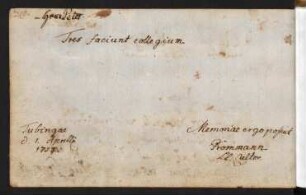 Tres faciunt collegium.
Tubingae
d. 1. Aprilis
Memoriae ergo posuit
Prommann
Cultor